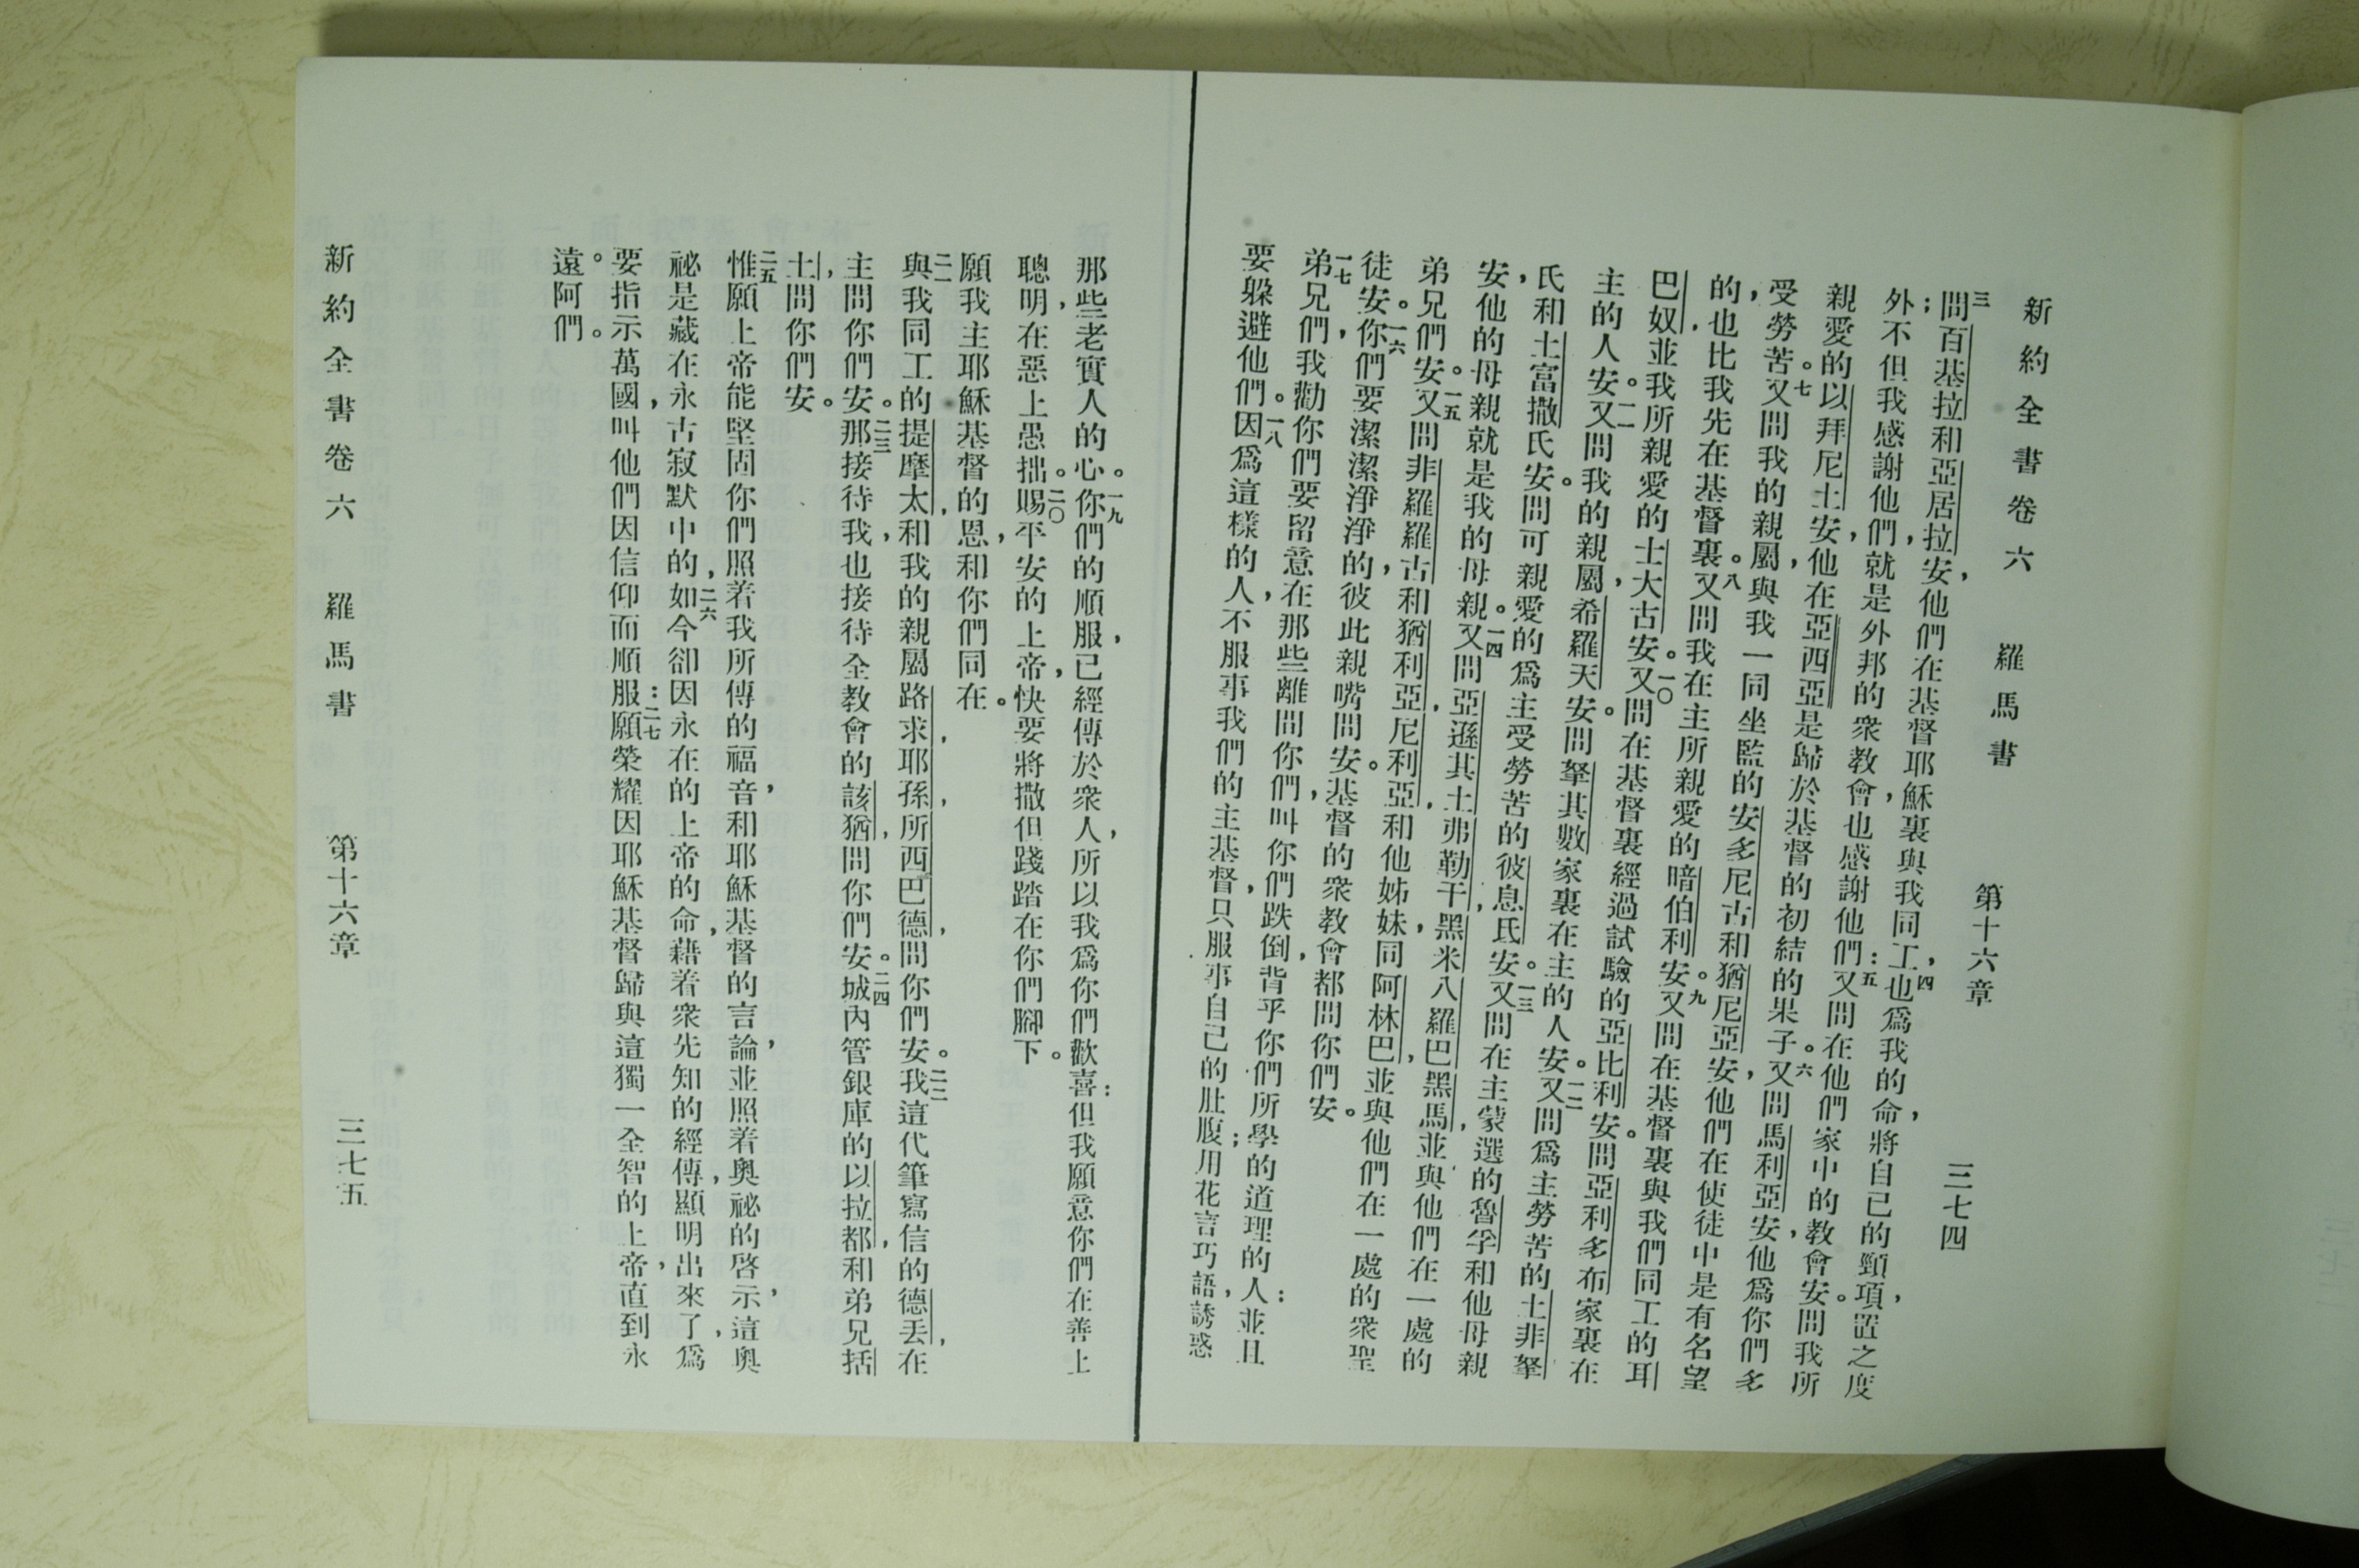 新約全書卷六 羅馬書 第十六章 三七四
三問百基拉和亞居拉安,他們在基督耶穌裏與我同工,四也爲我的命,將自己的頸項,置之度
外;不但我感謝他們,就是外邦的衆教會,也感謝他們:五又問在他們家中的教會安。問我所
親愛的以拜尼土安,他在亞西亞是歸於基督的初結的果子。六又問馬利亞安,他爲你們多
受勞苦。七又問我的親屬,與我一同坐監的安多尼古和猶尼亞安,他們在使徒中是有名望
的,也比我先在基督裏。八又問我在主所親愛的暗伯利安。九又問在基督裏與我們同工的耳
巴奴,並我所親愛的士大古安。一〇又問在基督裏經過試驗的亞比利安。問亞利多布家裏在
主的人安。一一又問我的親屬,希羅天安。問拏其數家裏在主的人安。一二又問爲主勞苦的土非拏
氏和土富撒氏安。問可親愛的爲主受勞苦的彼息氏安。一三又問在主蒙選的魯孚和他母親
安,他的母親就是我的母親。一四又問亞遜其土,弗勒干,黑米,八羅巴,黑馬,並與他們在一處的
弟兄們安。一五又問非羅羅古和猶利亞,尼利亞,和他姊妹,同阿林巴,並與他們在一處的衆聖
徒安。一六你們要潔潔淨淨的,彼此親嘴問安。基督的衆教會都問你們安。
一七弟兄們,我勸你們要留意在那些離間你們,叫你們跌倒,背乎你們所學的道理的人:並且
要躱避他們。一八因爲這樣的人,不服事我們的主基督,只服事自己的肚腹;用花言巧語,誘惑
那些老實人的心。一九你們的順服,已經傳於衆人,所以我爲你們歡喜:但我願意你們在善上
聰明,在惡上愚拙。二〇賜平安的上帝,快要將撒但踐踏在你們腳下。
願我主耶穌基督的恩,和你們同在。
二一與我同工的提摩太,和我的親屬路求,耶孫,所西巴德,問你們安。二二我這代筆寫信的德丟,在
主問你們安。二三那接待我,也接待全教會的該猶,問你們安。二四城內管銀庫的以拉都,和弟兄括
土,問你們安。
二五惟願上帝能堅固你們照着我所傳的福音,和耶穌基督的言論,並照着奧祕的啓示,這奧
祕是藏在永古寂默中的,二六如今卻因永在的上帝的命,藉着衆先知的經傳,顯明出來了,爲
要指示萬國,叫他們因信仰而順服:二七願榮耀因耶穌基督歸與這獨一全智的上帝,直到永
遠。阿們。
新約全書卷六 羅馬書 第十六章 三七五